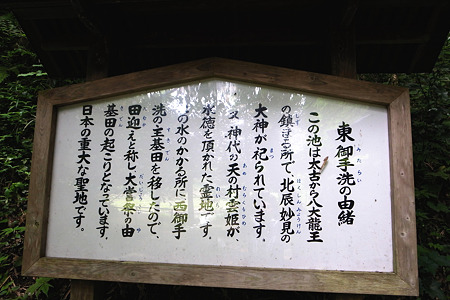 東御手洗の由緒
この池は太古から八大龍王
の鎮まる所で、北辰妙見の
大神が祀られています。
又神代の天の村雲姫が、
水徳を頂かれた霊地です。
この水のかかる所に西御手
洗の主基田を移したので、
田迎えと称し大嘗祭の由
基田の起こりとなっています。
日本の重大な聖地です。